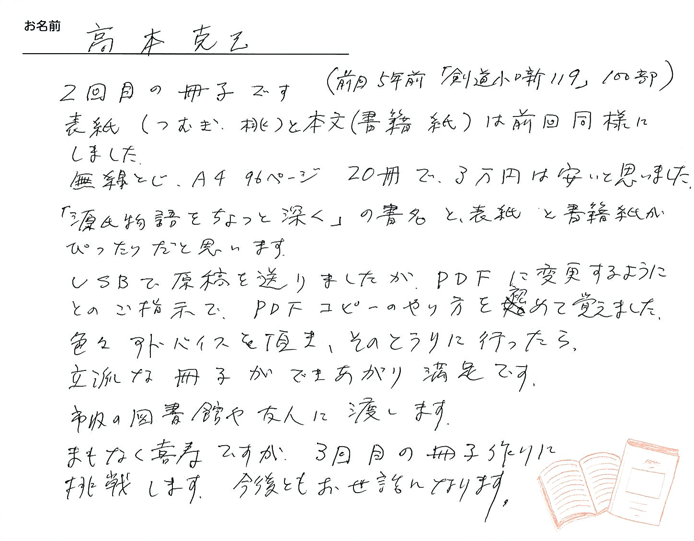 お名前
高本克己
2回目の冊子です (前回5年前「剣道小噺119」100部)
表紙(つむぎ、桃)と本文(書籍紙)は前回同様に
しました。
無線とじ、A4 96ページ 20冊で、3万円は安いと思いました。
「源氏物語をちょっと深く」の書名と、表紙と書籍紙が
ぴったりだと思います。
USBで原稿を送りましたが、PDFに変更するように
とのご指示で、PDFコピーのやり方を初めて覚えました。
色々アドバイスを頂き、そのとうりに行ったら、
立派な冊子ができあがり満足です。
市の図書館や友人に渡します。
まもなく喜寿ですが、3回目の冊子作りに
挑戦します。今後ともお世話になります。